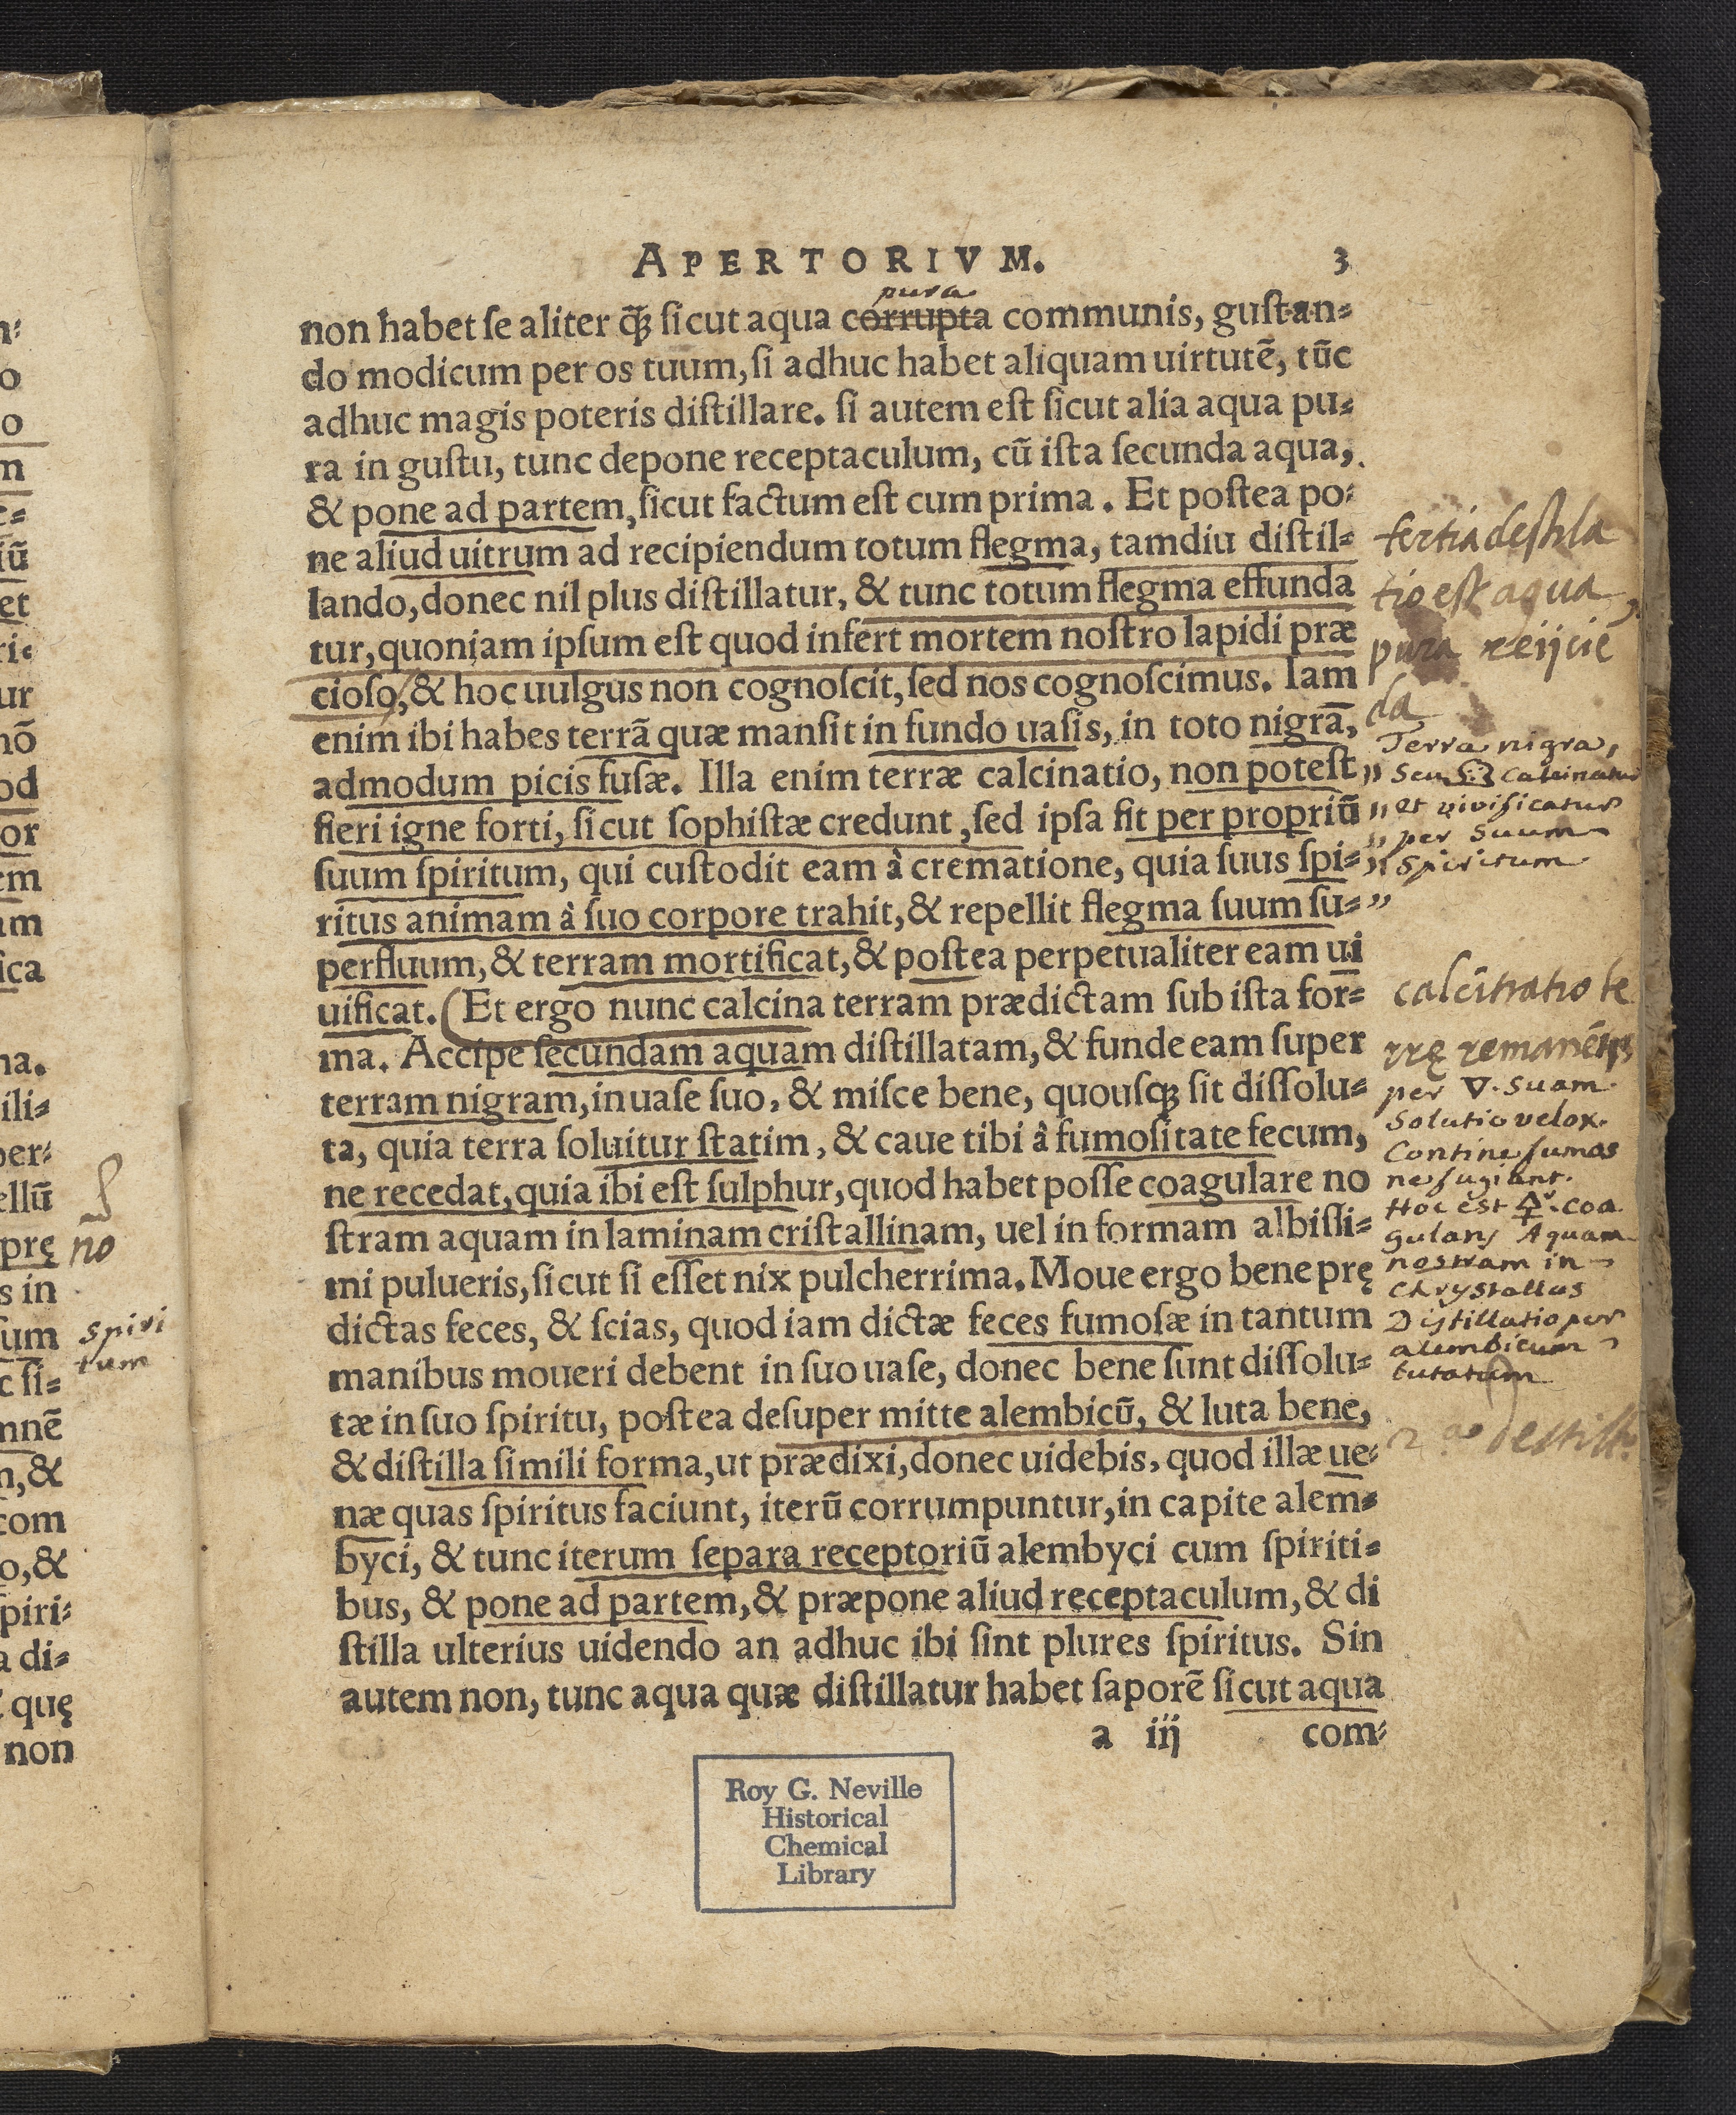 APERTORIVM. 3
pura
non habet se aliter q̃ꝫ sicut aqua corrupta communis, gustan⸗
do modicum per os tuum, si adhuc habet aliquam uirtutē, tūc
adhuc magis poteris distillare. si autem est sicut alia aqua pu⸗
ra in gustu, tunc depone receptaculum, cū ista secunda aqua,
& pone ad partem, sicut factum est cum prima. Et postea po⸗
ne aliud uitrum ad recipiendum totum flegma, tamdiu distil⸗
lando, donec nil plus distillatur, & tunc totum flegma effunda
tur, quoniam ipsum est quod infert mortem nostro lapidi præ
cioso, & hoc uulgus non cognoscit, sed nos cognoscimus. Iam
enim ibi habes terrā quæ mansit in fundo uasis, in toto nigrā,
admodum picis fusæ. Illa enim terræ calcinatio, non potest
fieri igne forti, sicut sophistæ credunt, sed ipsa fit per propriū
suum spiritum, qui custodit eam à crematione, quia suus spi⸗
ritus animam à suo corpore trahit, & repellit flegma suum su⸗
perfluum, & terram mortificat, & postea perpetualiter eam ui
uificat. (Et ergo nunc calcina terram prædictam sub ista for⸗
ma. Accipe secundam aquam distillatam, & funde eam super
terram nigram, in uase suo, & misce bene, quousqꝫ sit dissolu⸗
ta, quia terra soluitur statim, & caue tibi â fumositate fecum,
ne recedat, quia ibi est sulphur, quod habet posse coagulare no
stram aquam in laminam cristallinam, uel in formam albissi⸗
mi pulueris, sicut si esset nix pulcherrima. Moue ergo bene prę
dictas feces, & scias, quod iam dictæ feces fumosæ in tantum
manibus moueri debent in suo uase, donec bene sunt dissolu⸗
tæ in suo spiritu, postea desuper mitte alembicū, & luta bene,
& distilla simili forma, ut prædixi, donec uidebis, quod illæ ue⸗
næ quas spiritus faciunt, iterū corrumpuntur, in capite alem⸗
byci, & tunc iterum separa receptoriū alembyci cum spiriti⸗
bus, & pone ad partem, & præpone aliud receptaculum, & di
stilla ulterius uidendo an adhuc ibi sint plures spiritus. Sin
autem non, tunc aqua quæ distillatur habet saporē sicut aqua
a iij com⸗
tertia destila
tio est aqua
pura reijcie
da
Terra nigra,
Seu calcinatur
et vivificatur
per suum
spiritum
calcinatio te
rrę remanētis
per 🜄. suam.
Solutio velox.
Contine fumos
ne fugiant.
Hoc est 🜍r. coa
gulans Aquam
nostram in
Chrystallus
Distillatio per
alembicum
lutatum
2ª destill.
spiri
tum
no
Roy G. Neville
Historical
Chemical
Library